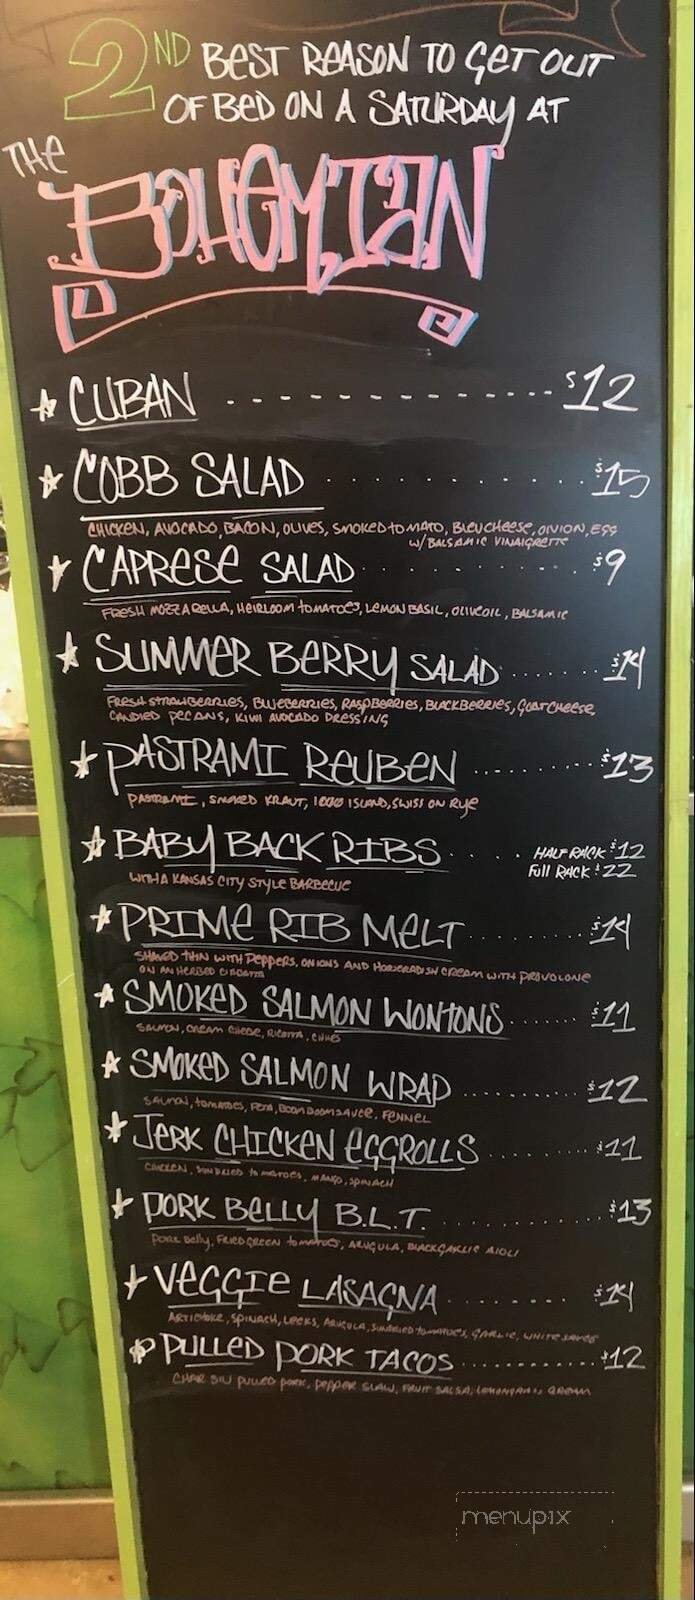 2ND BEST REASON TO GET OUT
OF BED ON A SATURDAY AT
THE
BOHEMIAN
CUBAN $12
COBB SALAD $15
CHICKEN, AVOCADO, BACON, OLIVES, SMOKED TOMATO, BLEU CHEESE, ONION, EGG
W/ BALSAMIC VINAIGRETTE
CAPRESE SALAD $9
FRESH MOZZARELLA, HEIRLOOM TOMATOES, LEMON BASIL, OLIVE OIL, BALSAMIC
SUMMER BERRY SALAD $14
FRESH STRAWBERRIES, BLUEBERRIES, RASPBERRIES, BLACKBERRIES, GOAT CHEESE,
CANDIED PECANS, KIWI AVOCADO DRESSING
PASTRAMI REUBEN $13
PASTRAMI, SMOKED KRAUT, 1000 ISLAND, SWISS ON RYE
BABY BACK RIBS HALF RACK $12
FULL RACK $22
WITH A KANSAS CITY STYLE BARBECUE
PRIME RIB MELT $14
SHAVED THIN WITH PEPPERS, ONIONS AND HORSERADISH CREAM WITH PROVOLONE
ON AN HERBED CIABATTA
SMOKED SALMON WONTONS $11
SALMON, CREAM CHEESE, RICOTTA, CHIVES
SMOKED SALMON WRAP $12
SALMON, TOMATOES, FETA, BOOM BOOM SAUCE, FENNEL
JERK CHICKEN EGGROLLS $11
CHICKEN, SUNDRIED TOMATOES, MANGO, SPINACH
PORK BELLY B.L.T. $13
PORK BELLY, FRIED GREEN TOMATOES, ARUGULA, BLACK GARLIC AIOLI
VEGGIE LASAGNA $14
ARTICHOKE, SPINACH, LEEKS, ARUGULA, SUNDRIED TOMATOES, GARLIC, WHITE SAUCE
PULLED PORK TACOS $12
CHAR SIU PULLED PORK, PEPPER SLAW, FRUIT SALSA, LEMONGRASS CREAM
menupix